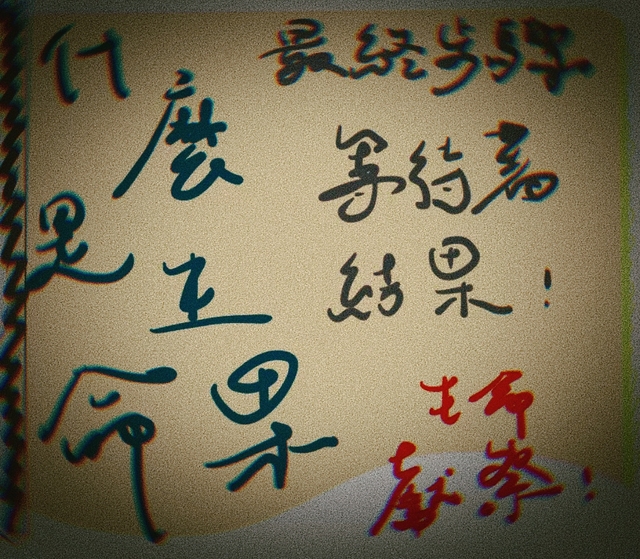 什麼
是生
命果
最終步驟
等待著
結果!
生命
獻祭!